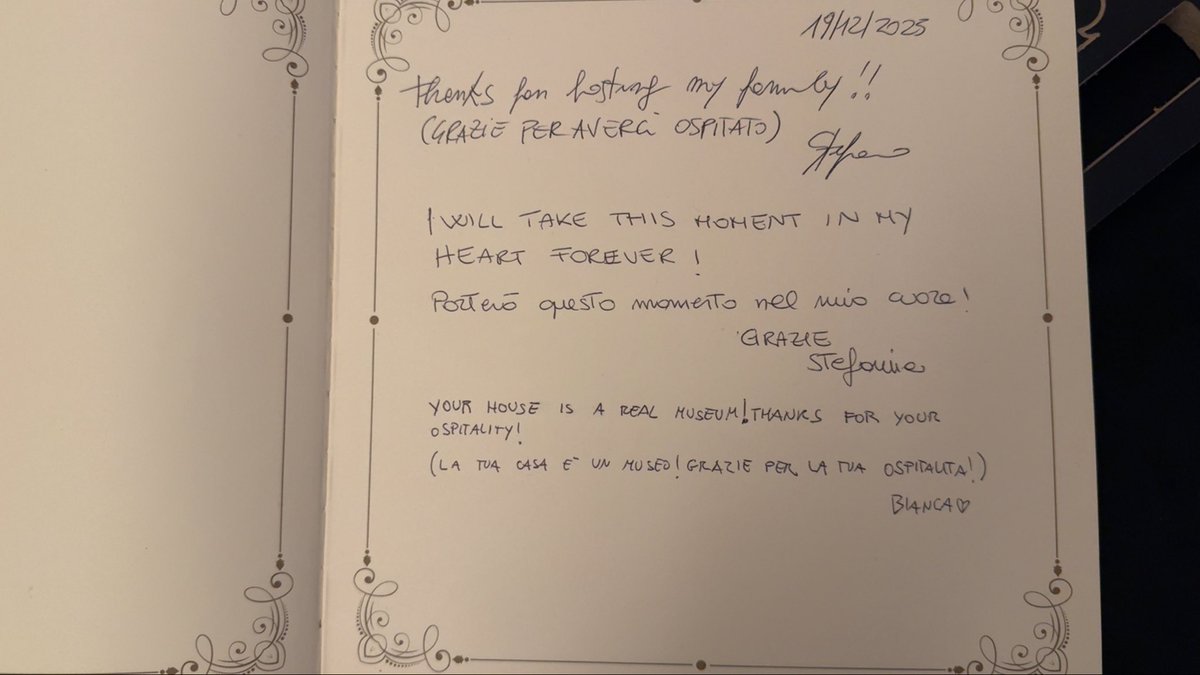 19/12/2025
Thanks for hosting my family!!
(GRAZIE PER AVERCI OSPITATO)
Stefano
I WILL TAKE THIS MOMENT IN MY
HEART FOREVER!
Porterò questo momento nel mio cuore!
GRAZIE
Stefania
YOUR HOUSE IS A REAL MUSEUM! THANKS FOR YOUR
OSPITALITY!
(LA TUA CASA È UN MUSEO! GRAZIE PER LA TUA OSPITALITA!)
BIANCA♡